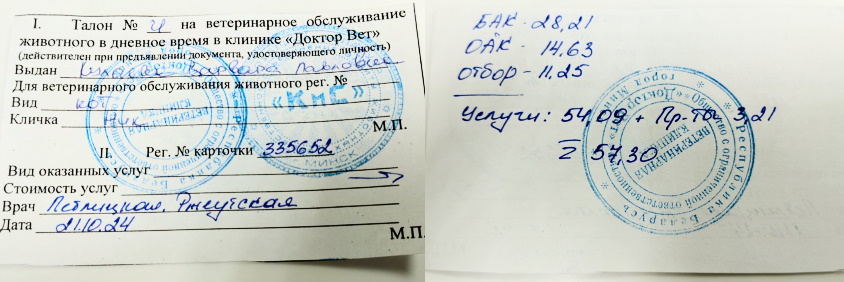 I. Талон № 4 на ветеринарное обслуживание
животного в дневное время в клинике «Доктор Вет»
(действителен при предъявлении документа, удостоверяющего личность)
Выдан Варвара Павловна
Для ветеринарного обслуживания животного рег. №
Вид кот
Кличка Ник
М.П.
II. Рег. № карточки 335652
Вид оказанных услуг
Стоимость услуг
Врач
Дата 21.10.24
М.П.
«КиС»
МИНСК
ВЕТЕРИНАРНАЯ
КЛИНИКА
БАК - 28,21
ОАК - 14,63
отбор - 11.25
Услуги: 54,09 + Пр-ты 3,21
Σ 57,30
Республика Беларусь
ВЕТЕРИНАРНАЯ
КЛИНИКА